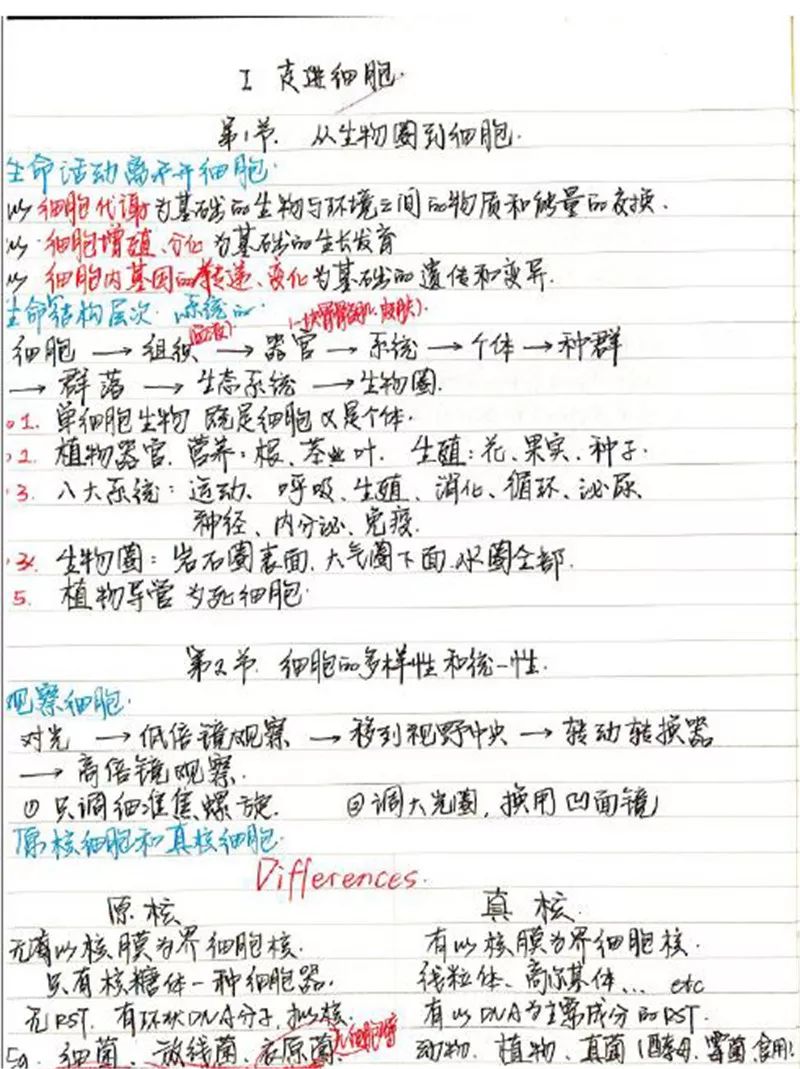 I 走进细胞.
第1节. 从生物圈到细胞.
生命活动离不开细胞.
以细胞代谢为基础的生物与环境之间的物质和能量的交换.
以细胞增殖、分化为基础的生长发育
以细胞内基因的传递、变化为基础的遗传和变异.
生命结构层次. 系统的
(血液) (一块骨骼肌、皮肤).
细胞 → 组织 → 器官 → 系统 → 个体 → 种群
→ 群落 → 生态系统 → 生物圈.
1. 单细胞生物 既是细胞又是个体.
2. 植物器官. 营养: 根、茎、叶. 生殖: 花、果实、种子.
3. 八大系统: 运动、呼吸、生殖、消化、循环、泌尿、
神经、内分泌、免疫.
生物圈: 岩石圈表面、大气圈下面、水圈全部.
5. 植物导管为死细胞.
第2节. 细胞的多样性和统一性.
观察细胞.
对光 → 低倍镜观察 → 移到视野中央 → 转动转换器
→ 高倍镜观察.
① 只调细准焦螺旋. ② 调大光圈, 换用凹面镜
原核细胞和真核细胞.
Differences.
原核 真核.
无以核膜为界细胞核. 有以核膜为界细胞核.
只有核糖体一种细胞器. 线粒体、高尔基体... etc
无RST. 有环状DNA分子, 拟核. 有以DNA为主要成分的RST.
Eg. 细菌、放线菌、衣原菌 无细胞壁 动物、植物、真菌(酵母、霉菌、食用